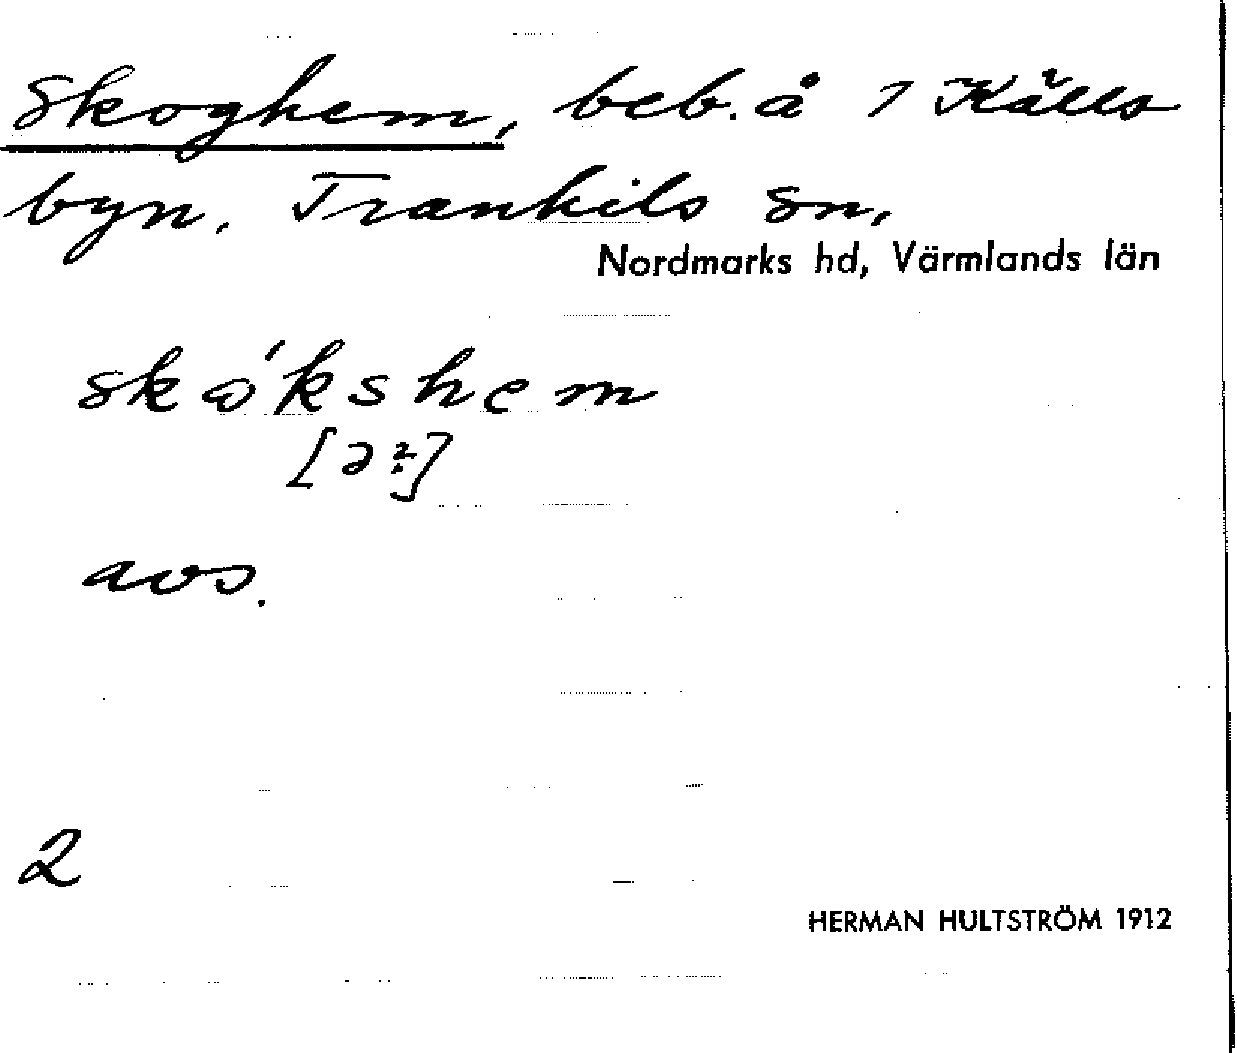 Skoghem, beb. å 1 Källs
byn, Trankils sn,
Nordmarks hd, Värmlands län
skɷ'kshem
[ə⹔]
avs.
2
HERMAN HULTSTRÖM 1912